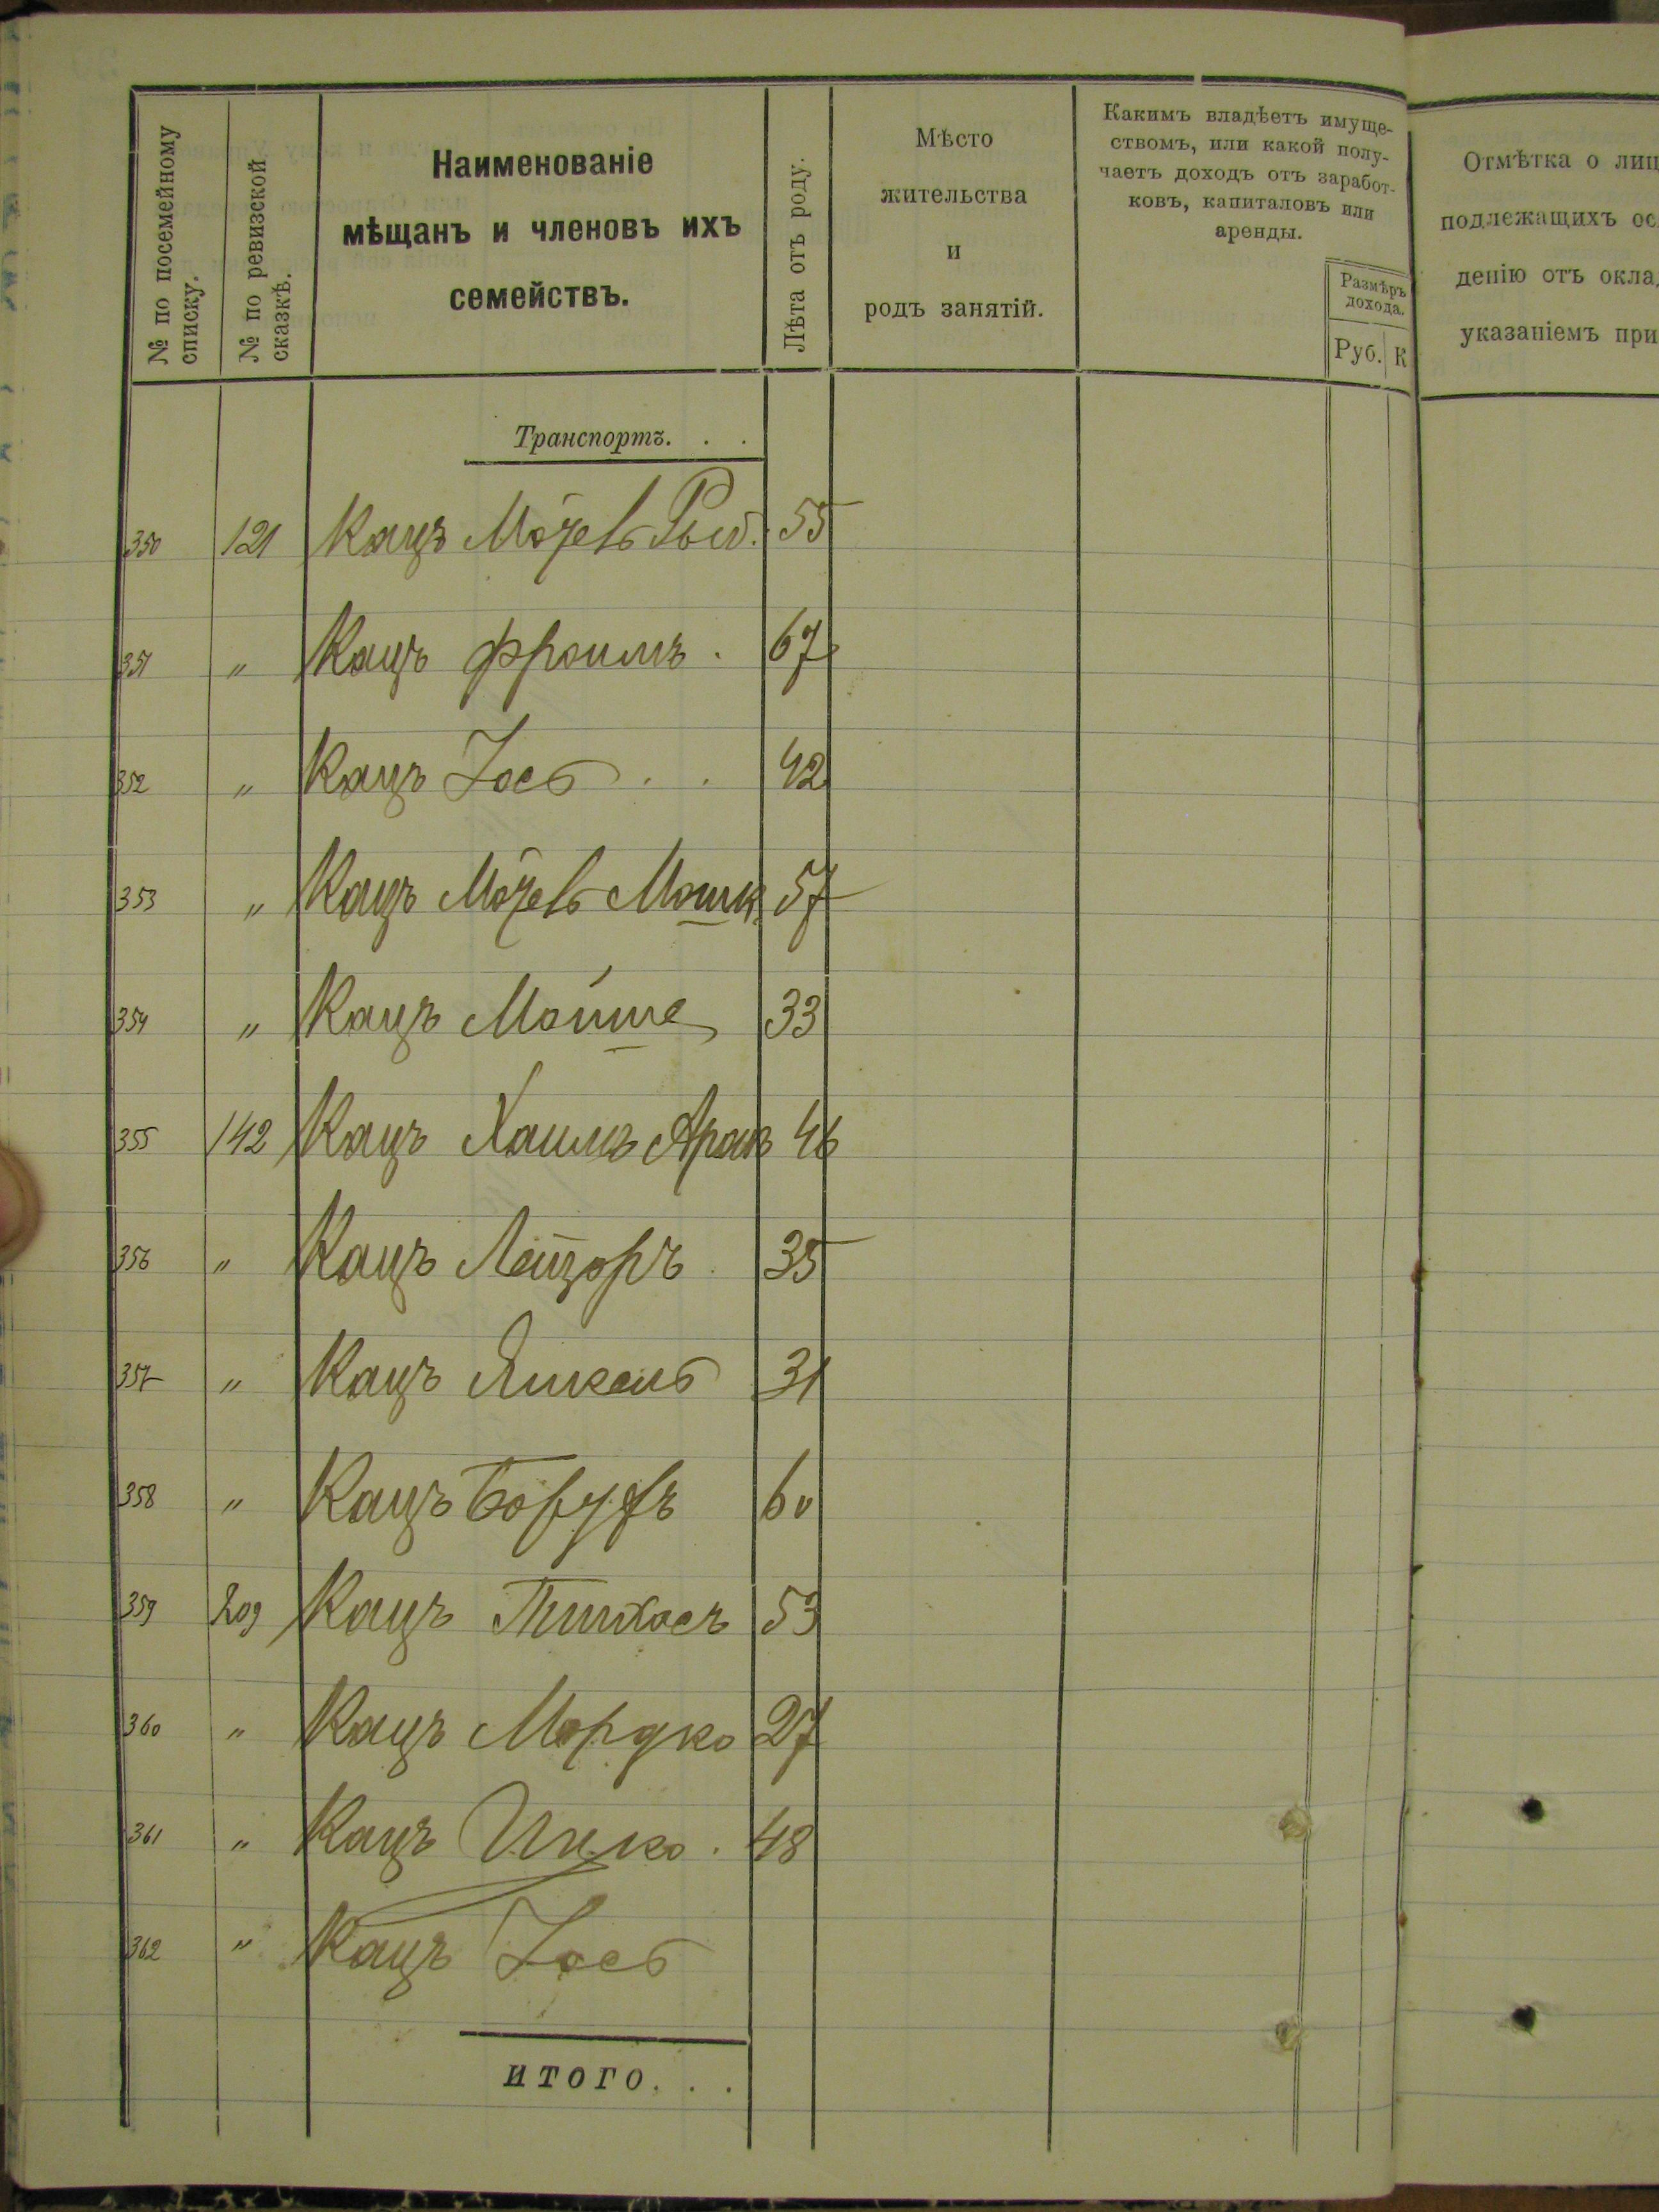 № по посемейному списку.
№ по ревизской сказкѣ.
Наименованіе
мѣщанъ и членовъ ихъ
семействъ.
Лѣта отъ роду.
Мѣсто
жительства
и
родъ занятій.
Какимъ владѣетъ имуще-
ствомъ, или какой полу-
чаетъ доходъ отъ заработ-
ковъ, капиталовъ или
аренды.
Размѣръ
дохода.
Руб. К
Отмѣтка о лиц
подлежащихъ ос
денію отъ окла
указаніемъ при
Транспортъ. . .
350 121 Кацъ 55
351 " Кацъ Фроимъ . 67
352 " Кацъ Іось . . 42
353 " Кацъ Мошк. 57
354 " Кацъ Мойше 33
355 142 Кацъ Хаимъ Арон 46
356 " Кацъ Лейзоръ 35
357 " Кацъ Янкель 31
358 " Кацъ Борухъ 60
359 209 Кацъ Пинхосъ 53
360 " Кацъ Мордко 27
361 " Кацъ Ицко . 48
362 " Кацъ Іось
ИТОГО. . .